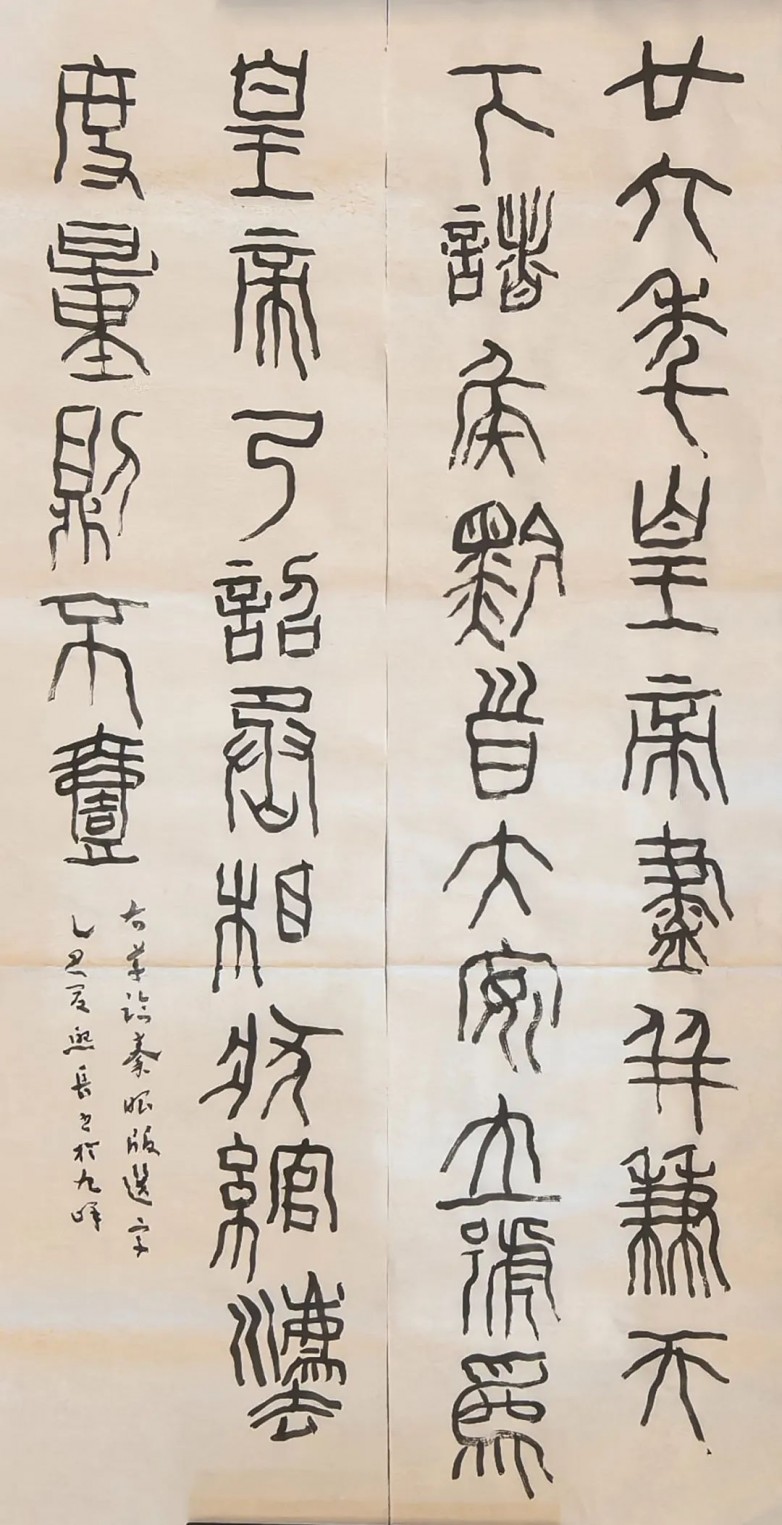 廿六年皇帝盡并兼天
下諸侯黔首大安立號爲
皇帝乃詔丞相狀綰灋
度量則不壹
右臨秦詔版選字
乙巳夏長書於九峰